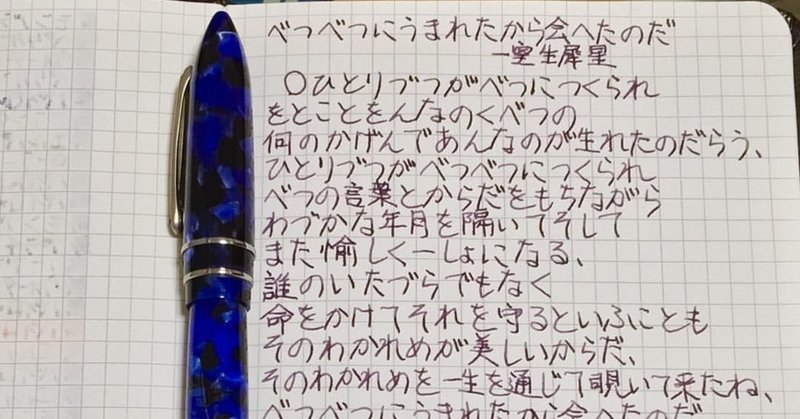 べつべつにうまれたから会へたのだ
ー室生犀星
〇ひとりづつがべつにつくられ
をとことをんなのくべつの
何のかげんであんなのが生れたのだらう、
ひとりづつがべつべつにつくられ
べつの言葉とからだをもちながら
わづかな年月を隔いてそして
また愉しく一しょになる、
誰のいたづらでもなく
命をかけてそれを守るといふことも
そのわかれめが美しいからだ、
そのわかれめを一生を通じて覗いて来たね、
べつべつにうまれたから会へたのだ